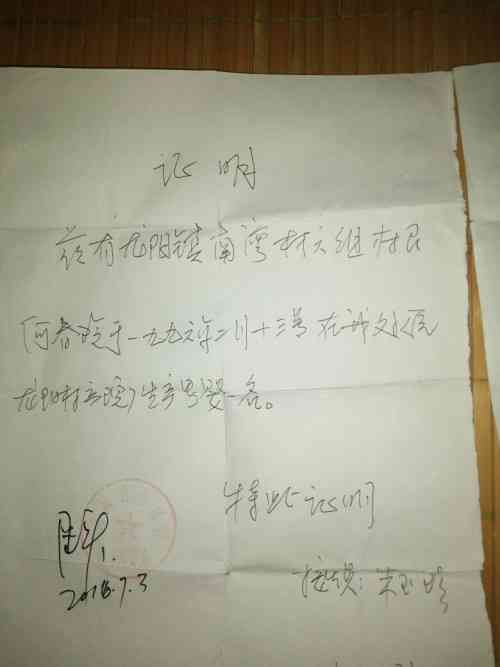 证明
兹有龙阳镇南湾村六组村民
何春玲于一九九六年二月十三号在我文化院
龙阳村医院)生产男婴一名。
特此证明
属实.
2018.7.3
接生员: 朱玉